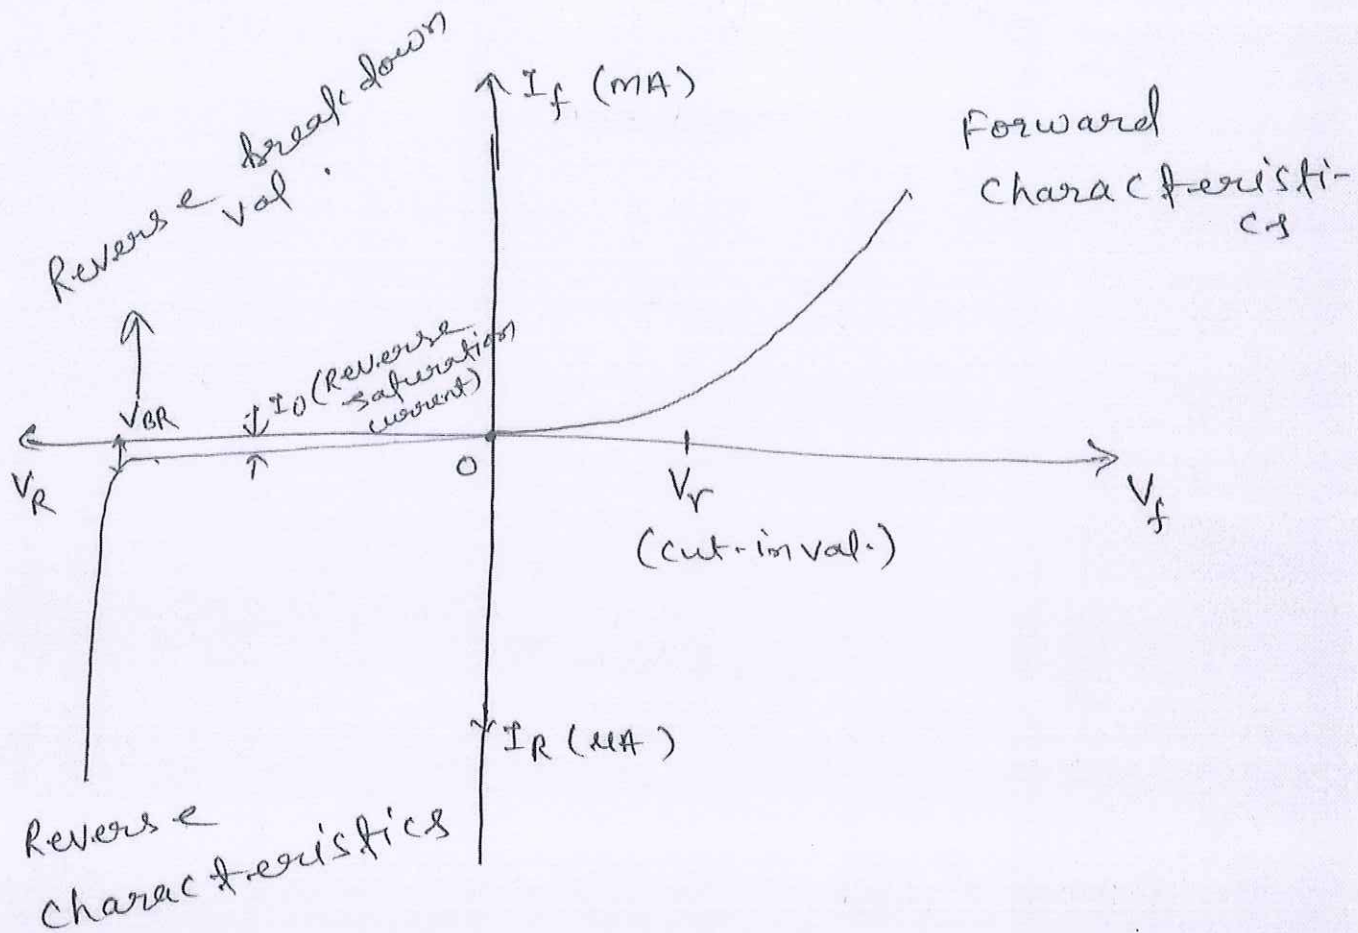 Reverse breakdown
vol.
I_f (mA)
Forward
characteristi-
cs
I_0 (Reverse
saturation
current)
V_BR
V_R
O
V_r
(cut-in vol.)
V_f
I_R (µA)
Reverse
characteristics